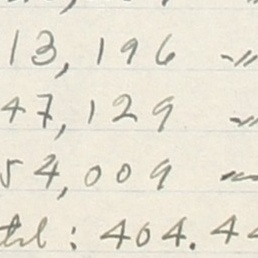 13,196 -"
47,129 -"
54,009 -
tal: 404.44